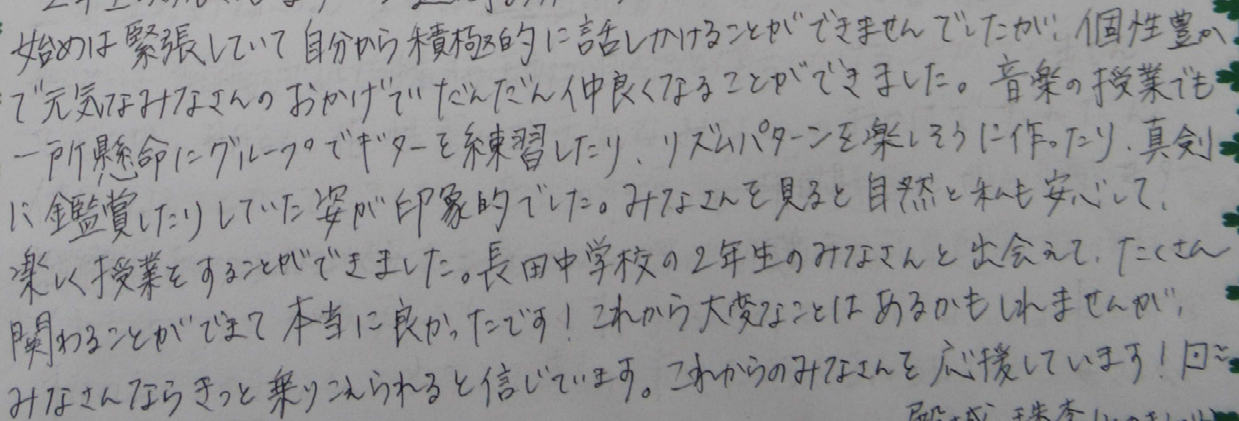 始めは緊張していて自分から積極的に話しかけることができませんでしたが、個性豊か
で元気なみなさんのおかげでだんだん仲良くなることができました。音楽の授業でも
一所懸命にグループでギターを練習したり、リズムパターンを楽しそうに作ったり、真剣
に鑑賞したりしていた姿が印象的でした。みなさんを見ると自然と私も安心して、
楽しく授業をすることができました。長田中学校の2年生のみなさんと出会えて、たくさん
関わることができて本当に良かったです！これから大変なことはあるかもしれませんが、
みなさんならきっと乗りこえられると信じています。これからのみなさんを応援しています！